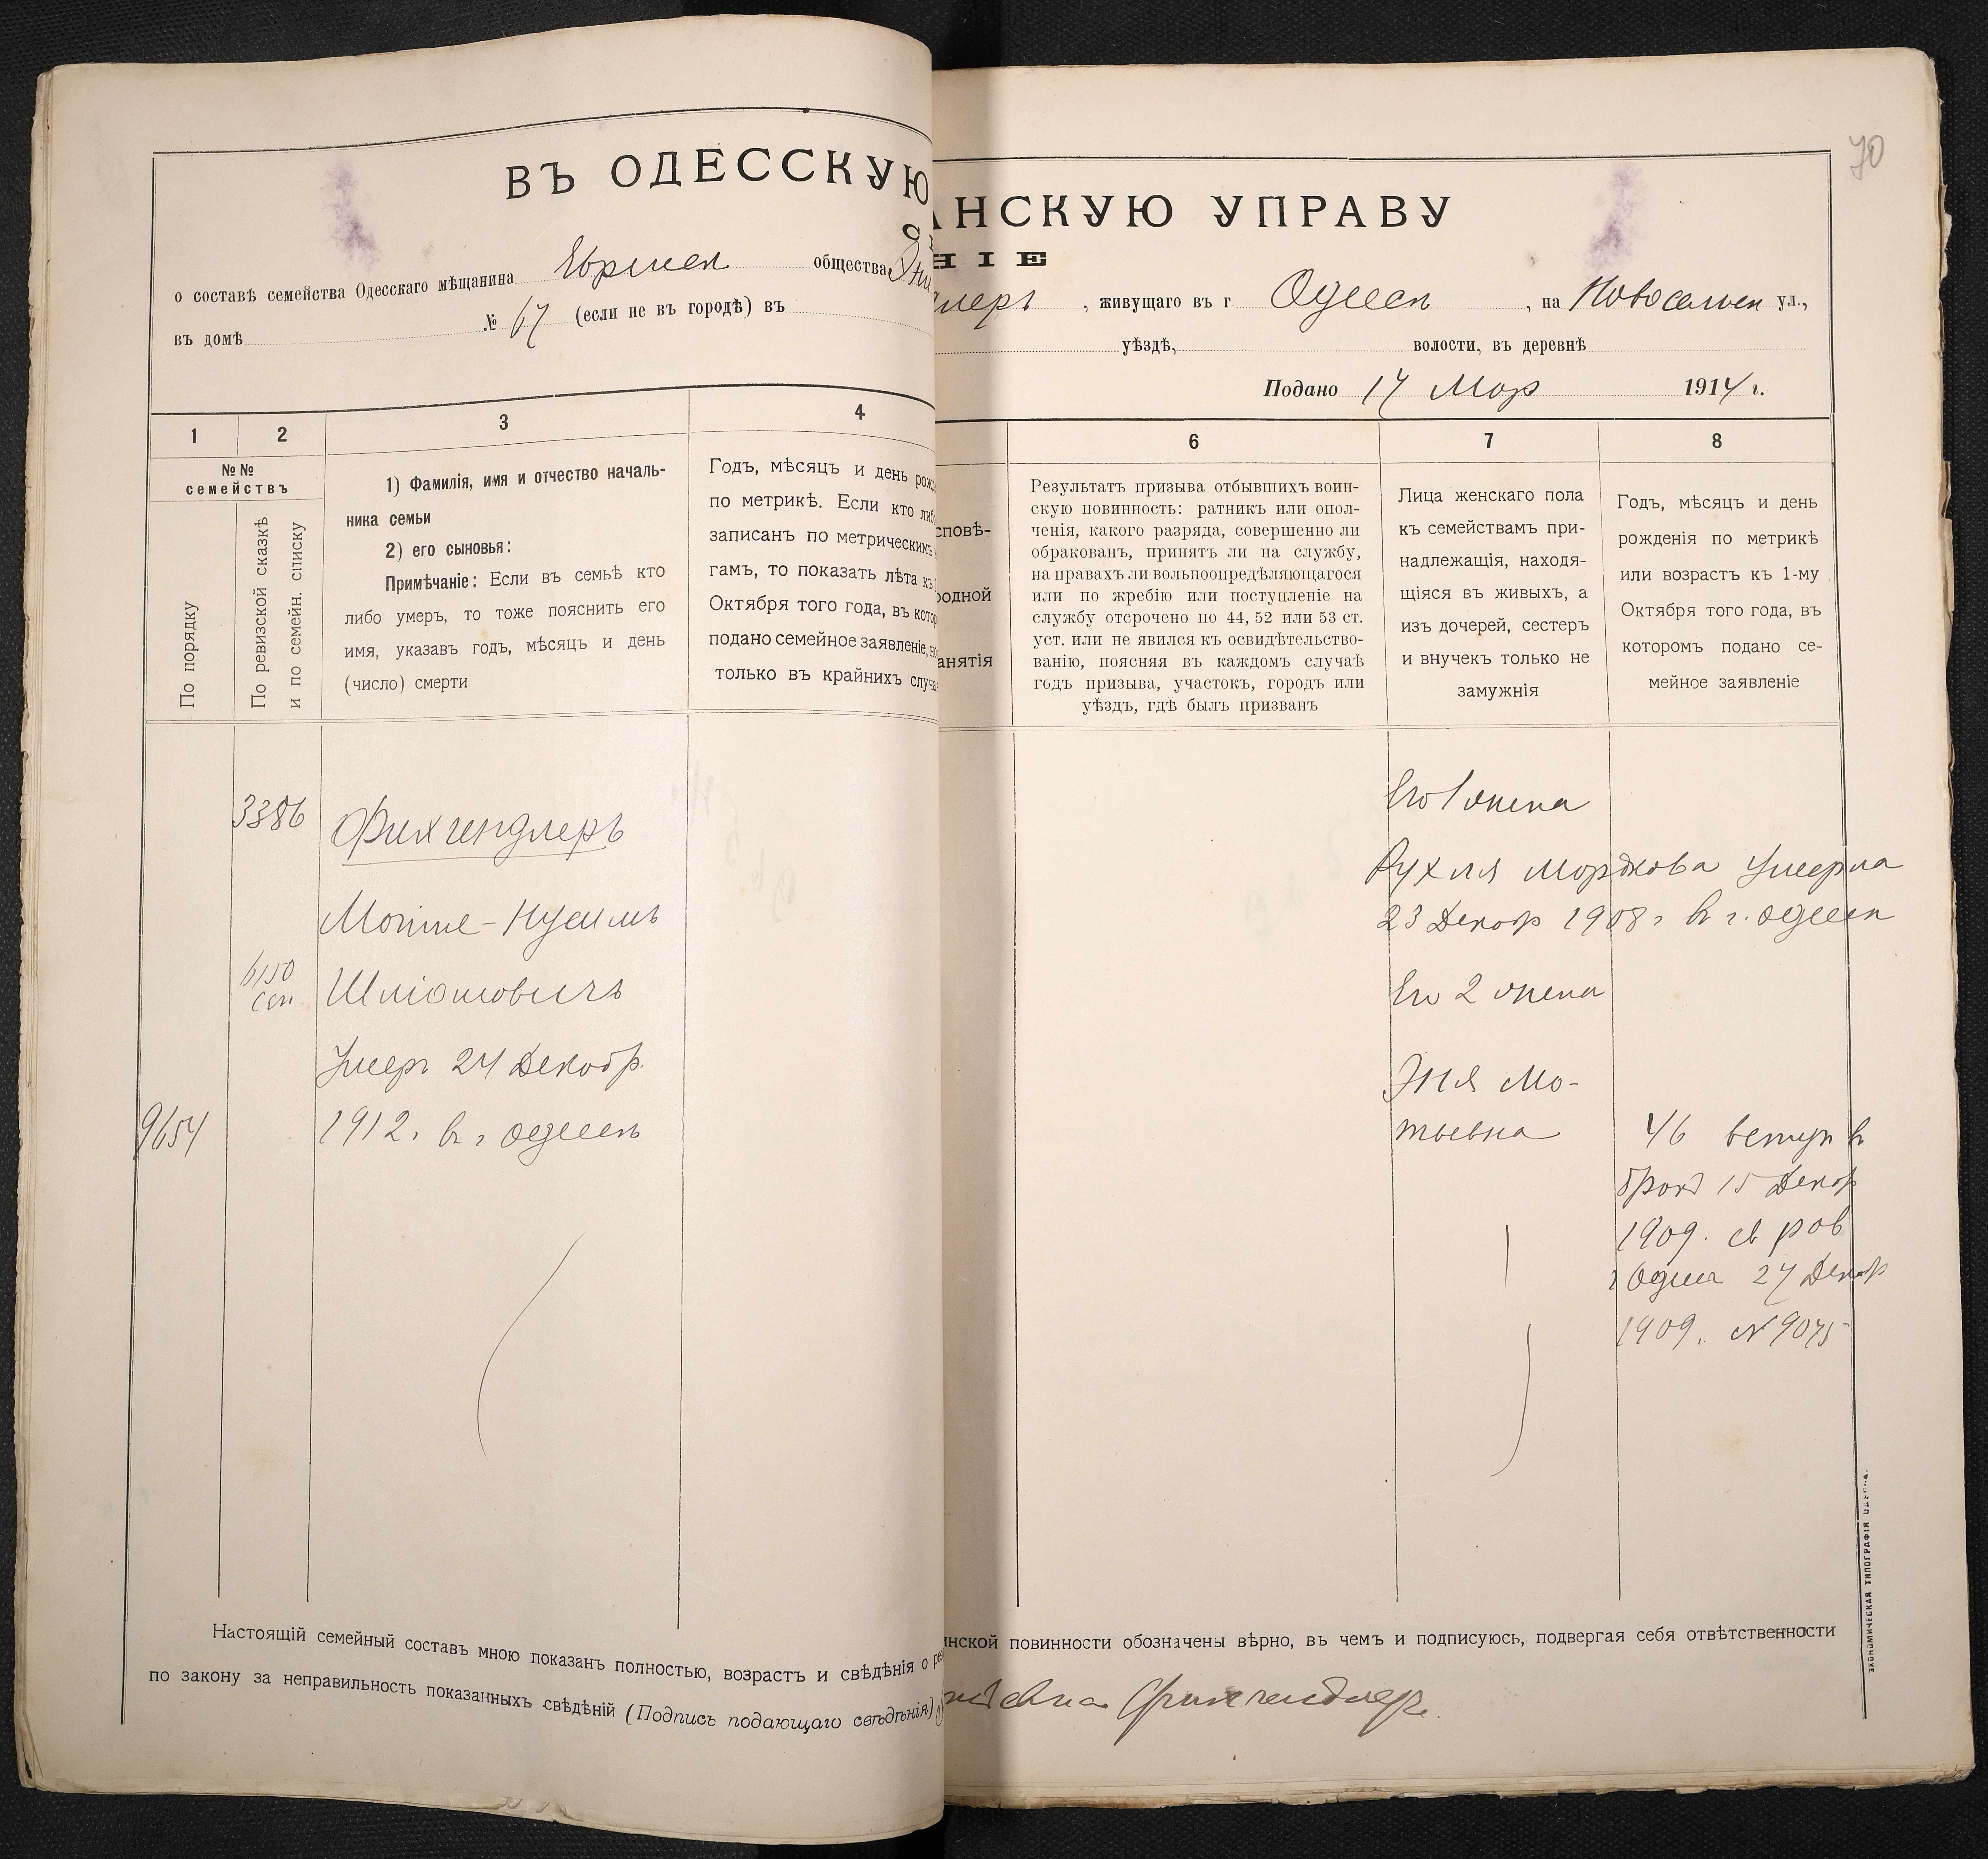 70
ВЪ ОДЕССКУЮ
АНСКУЮ УПРАВУ
НІЕ
о составѣ семейства Одесскаго мѣщанина Еврейск общества
лерь, живущаго въ г Одессѣ, на Новосельск ул.,
въ домѣ № 67 (если не въ городѣ) въ
уѣздѣ, волости, въ деревнѣ
Подано 17 Мар 1914 г.
1
2
3
4
№№
семействъ
По порядку
По ревизской сказкѣ
и по семейн. списку
1) Фамилія, имя и отчество началь-
ника семьи
2) его сыновья:
Примѣчаніе: Если въ семьѣ кто
либо умеръ, то тоже пояснить его
имя, указавъ годъ, мѣсяцъ и день
(число) смерти
Годъ, мѣсяцъ и день рожд
по метрикѣ. Если кто либ
записанъ по метрическимъ
гамъ, то показать лѣта къ
Октября того года, въ кото
подано семейное заявленіе, но
только въ крайнихъ случа
сповѣ-
родной
анятія
6
7
8
Результатъ призыва отбывшихъ воин-
скую повинность: ратникъ или опол-
ченія, какого разряда, совершенно ли
обракованъ, принятъ ли на службу,
на правахъ ли вольноопредѣляющагося
или по жребію или поступленіе на
службу отсрочено по 44, 52 или 53 ст.
уст. или не явился къ освидѣтельство-
ванію, поясняя въ каждомъ случаѣ
годъ призыва, участокъ, городъ или
уѣздъ, гдѣ былъ призванъ
Лица женскаго пола
къ семействамъ при-
надлежащія, находя-
щіяся въ живыхъ, а
изъ дочерей, сестеръ
и внучекъ только не
замужнія
Годъ, мѣсяцъ и день
рожденія по метрикѣ
или возрастъ къ 1-му
Октября того года, въ
которомъ подано се-
мейное заявленіе
3386
Фихгендлеръ
Мотте-Нусимъ
6150
сем
Шліомовичъ
Умеръ 24 Декабр.
9654
1912. въ г Одессѣ
Его 1 жена
Рухля Мордкова Умерла
23 Декабр 1908 г въ г. Одессѣ
Его 2 жена
Эня Мо-
тьевна
46 вступ въ
бракъ 15 Декабр
1909. св рав
г Одесс 27 Декабр
1909. № 9075
Настоящій семейный составъ мною показанъ полностью, возрастъ и свѣдѣнія о
инской повинности обозначены вѣрно, въ чемъ и подписуюсь, подвергая себя отвѣтственности
по закону за неправильность показанныхъ свѣдѣній (Подпись подающаго свѣдѣнія)
евна Фихгендлеръ.
ЭКОНОМИЧЕСКАЯ ТИПОГРАФІЯ ОДЕССА.